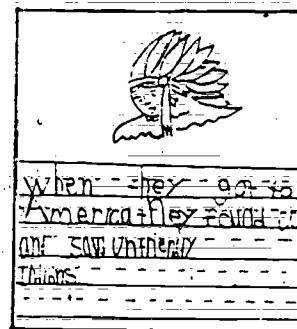 when they got to
America they found
and saw unfriendly
Indians